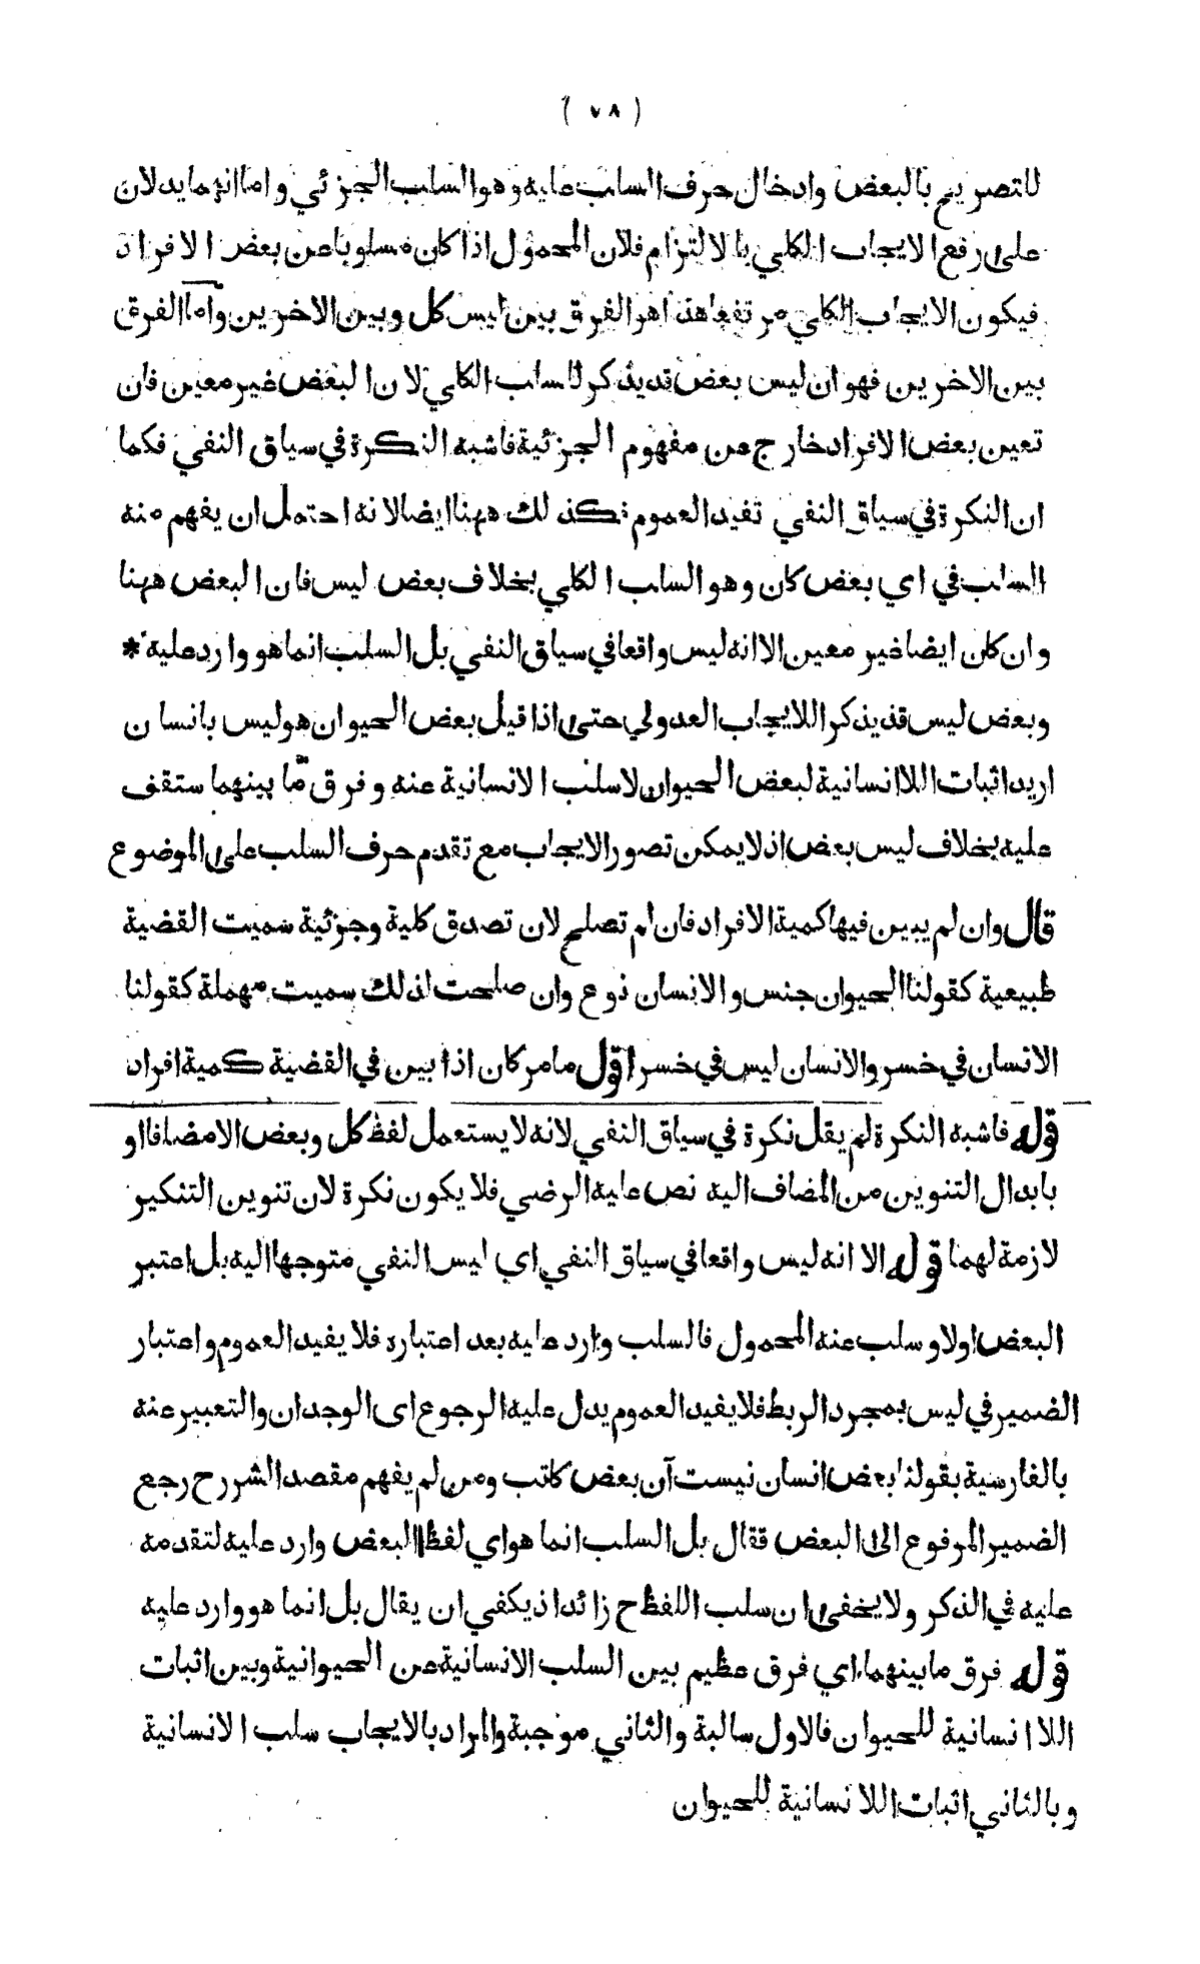 ( ٧٨ )
للتصريح بالبعض وادخال حرف السلب عليه وهو السلب الجزئي واما انهما يدلان
على رفع الايجاب الكلي بالالتزام فلان المحمول اذا كان مسلوبا عن بعض الافراد
فيكون الايجاب الكلي مرتفعا هذا هو الفرق بين ليس كل وبين الاخرين واما الفرق
بين الاخرين فهو ان ليس بعض قد يذكر للسلب الكلي لان البعض غير معين فان
تعين بعض الافراد خارج عن مفهوم الجزئية فاشبه النكرة في سياق النفي فكما
ان النكرة في سياق النفي تفيد العموم فكذلك ههنا ايضا لانه احتمل ان يفهم منه
السلب في اي بعض كان وهو السلب الكلي بخلاف بعض ليس فان البعض ههنا
وان كان ايضا غير معين الا انه ليس واقعا في سياق النفي بل السلب انما هو وارد عليه *
وبعض ليس قد يذكر اللايجاب العدولي حتى اذا قيل بعض الحيوان هو ليس بانسان
اريد اثبات اللا انسانية لبعض الحيوان لا سلب الانسانية عنه وفرق مّا بينهما ستقف
عليه بخلاف ليس بعض اذ لا يمكن تصور الايجاب مع تقدم حرف السلب على الموضوع
قال وان لم يبين فيها كمية الافراد فان لم تصلح لان تصدق كلية وجزئية سميت القضية
طبيعية كقولنا الحيوان جنس والانسان نوع وان صلحت لذلك سميت مهملة كقولنا
الانسان في خسر والانسان ليس في خسر اقول ما مر كان اذا بين في القضية كمية افراد
قوله فاشبه النكرة لم يقل نكرة في سياق النفي لانه لا يستعمل لفظ كل وبعض الا مضافا او
بابدال التنوين من المضاف اليه نص عليه الرضي فلا يكون نكرة لان تنوين التنكير
لازمة لهما قوله الا انه ليس واقعا في سياق النفي اي ليس النفي متوجها اليه بل اعتبر
البعض اولا وسلب عنه المحمول فالسلب وارد عليه بعد اعتباره فلا يفيد العموم واعتبار
الضمير في ليس بمجرد الربط فلا يفيد العموم يدل عليه الرجوع الى الوجدان والتعبير عنه
بالفارسية بقولنا بعض انسان نيست آن بعض كاتب ومن لم يفهم مقصد الشررح رجع
الضمير المرفوع الى البعض فقال بل السلب انما هو اي لفظ البعض وارد عليه لتقدمه
عليه في الذكر ولا يخفى ان سلب اللفظ ح زائد اذ يكفي ان يقال بل انما هو وارد عليه
قوله فرق ما بينهما اي فرق عظيم بين السلب الانسانية عن الحيوانية وبين اثبات
اللا انسانية للحيوان فالاول سالبة والثاني موجبة والمراد بالايجاب سلب الانسانية
وبالثاني اثبات اللا نسانية للحيوان